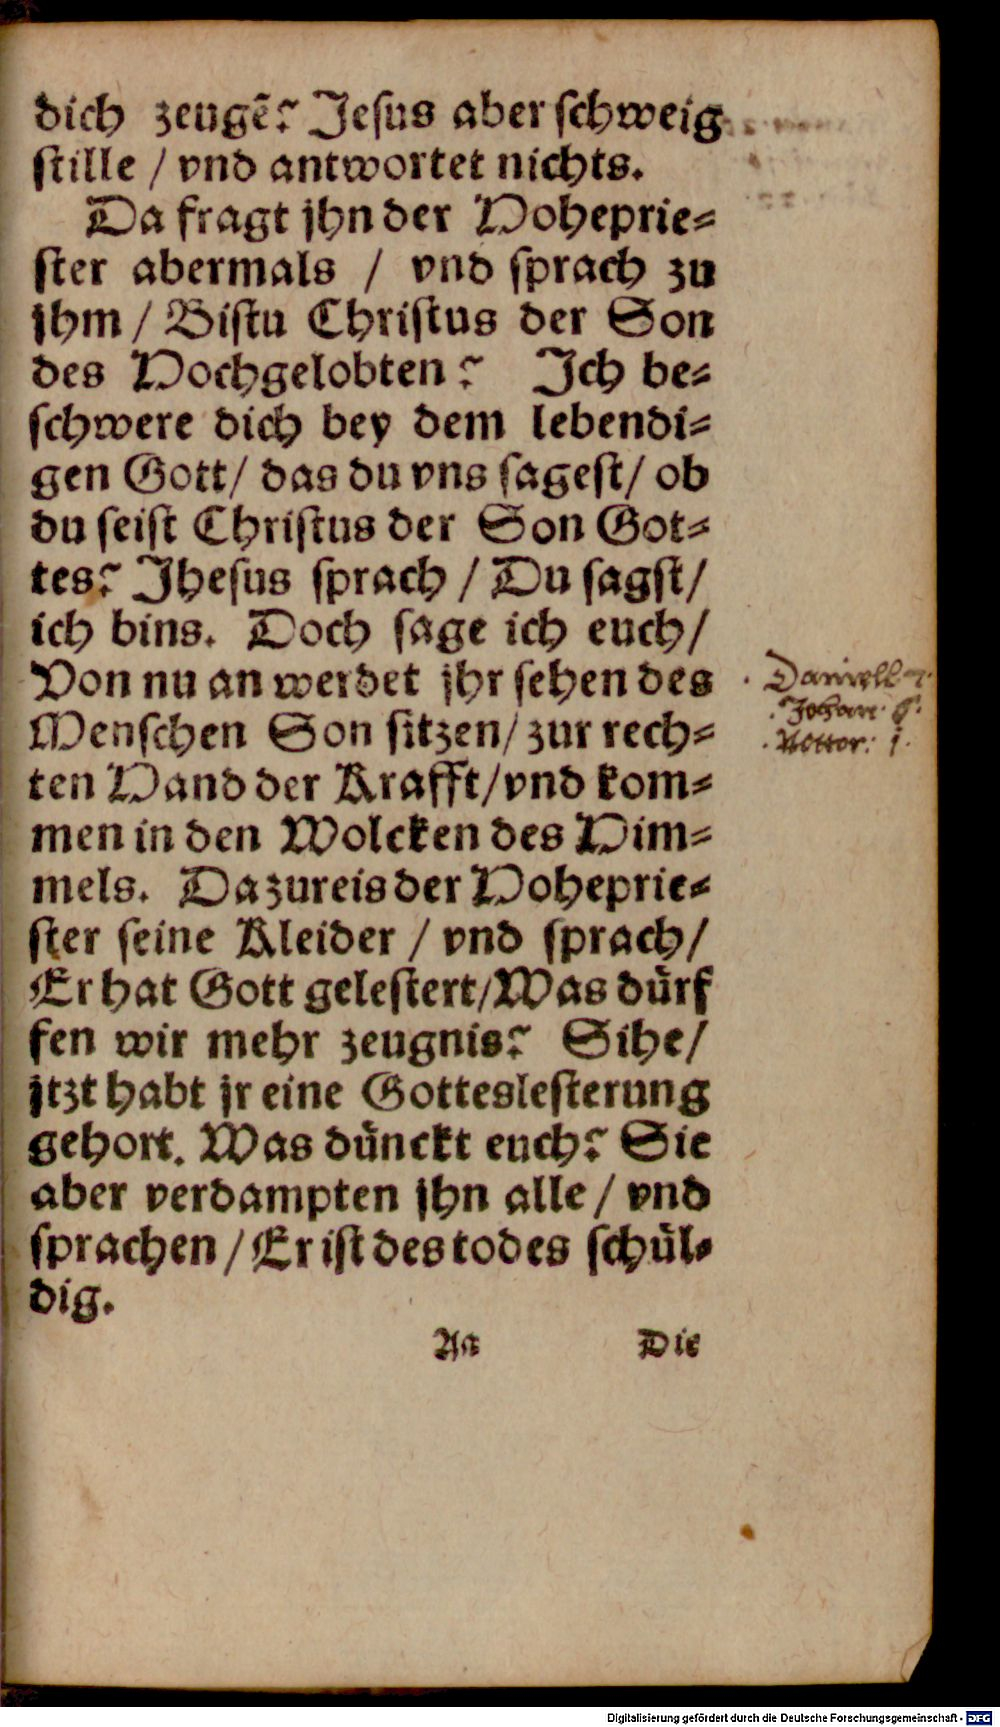 dich zeugē? Jesus aber schweig
stille / vnd antwortet nichts.
Da fragt jhn der Hoheprie⸗
ster abermals / vnd sprach zu
jhm / Bistu Christus der Son
des Hochgelobten? Ich be⸗
schwere dich bey dem lebendi⸗
gen Gott / das du vns sagest / ob
du seist Christus der Son Got⸗
tes? Jhesus sprach / Du sagst /
ich bins. Doch sage ich euch /
Von nu an werdet jhr sehen des
Menschen Son sitzen / zur rech⸗
ten Hand der Krafft / vnd kom⸗
men in den Wolcken des Him⸗
mels. Da zureis der Hoheprie⸗
ster seine Kleider / vnd sprach /
Er hat Gott gelestert / Was dürf
fen wir mehr zeugnis? Sihe /
jtzt habt jr eine Gotteslesterung
gehort. Was dünckt euch? Sie
aber verdampten jhn alle / vnd
sprachen / Er ist des todes schül⸗
dig.
Aa Die
Daniell 7.
Johan. 6.
1.
Digitalisierung gefördert durch die Deutsche Forschungsgemeinschaft - DFG